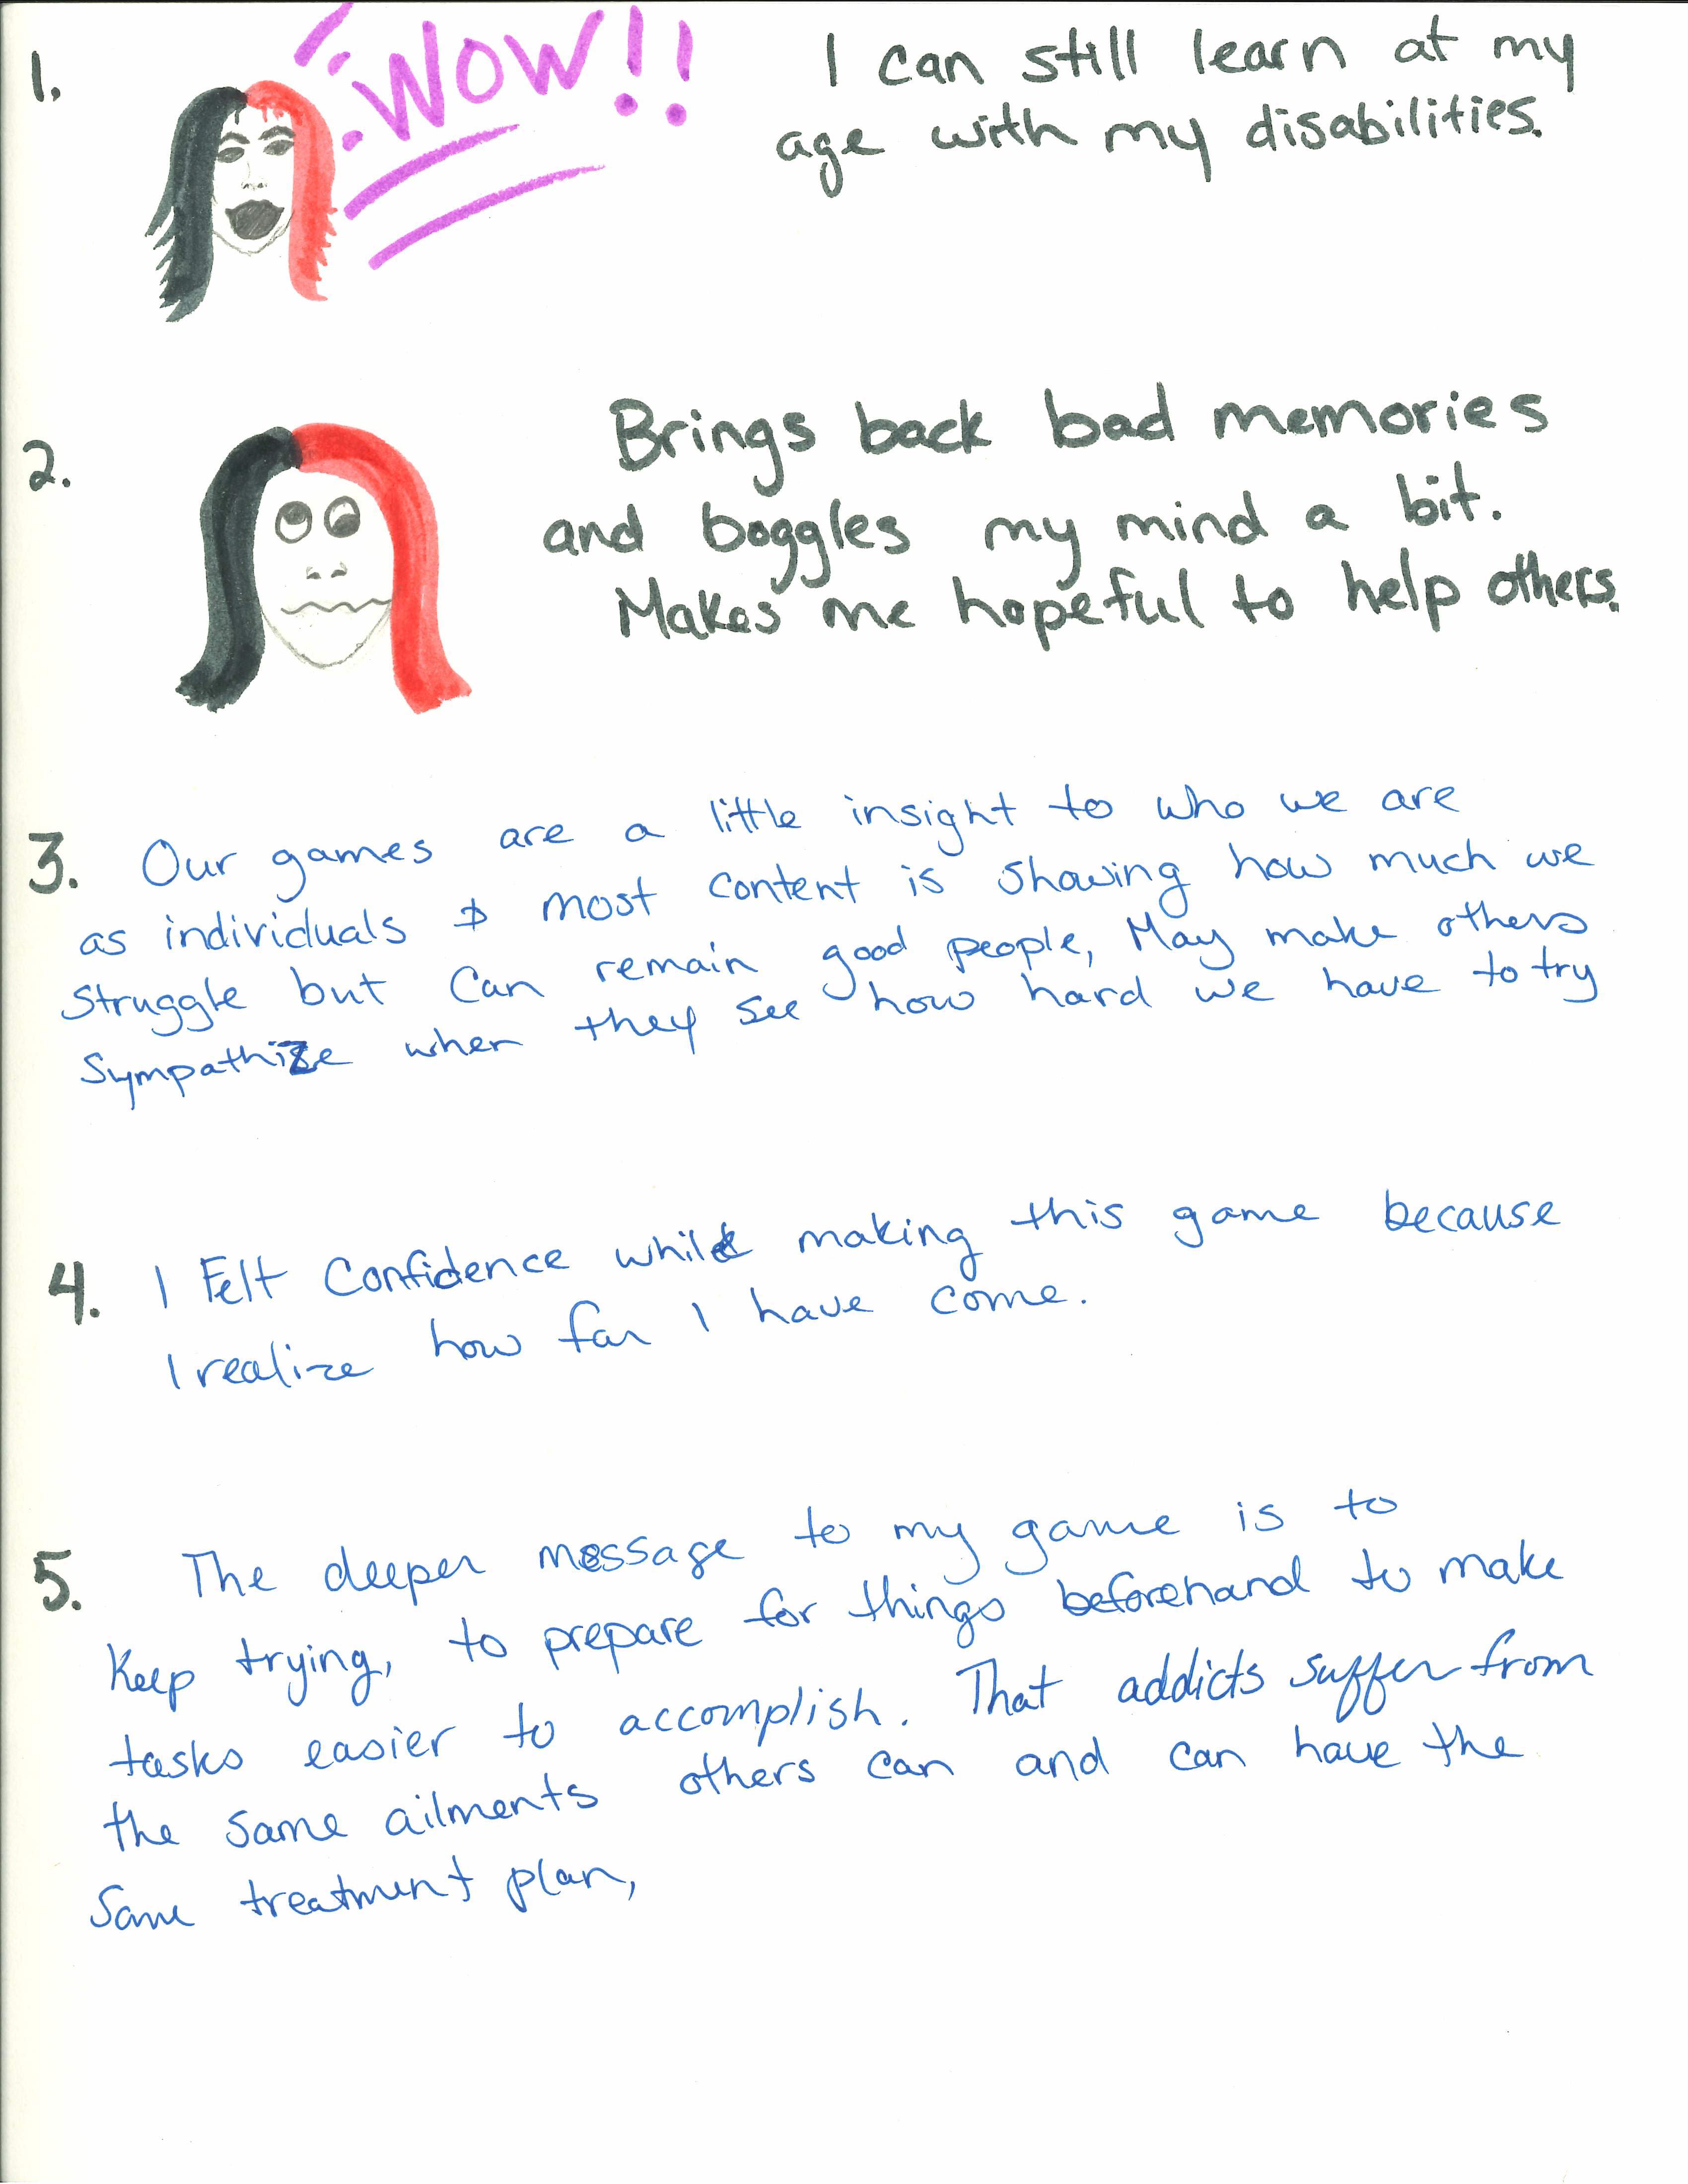 1. WOW!! I can still learn at my
age with my disabilities.
2. Brings back bad memories
and boggles my mind a bit.
Makes me hopeful to help others.
3. Our games are a little insight to who we are
as individuals & most content is showing how much we
struggle but can remain good people, May make others
sympathize when they see how hard we have to try
4. I Felt Confidence while making this game because
I realize how far I have come.
5. The deeper message to my game is to
keep trying, to prepare for things beforehand to make
tasks easier to accomplish. That addicts suffer from
the same ailments others can and can have the
same treatment plan,